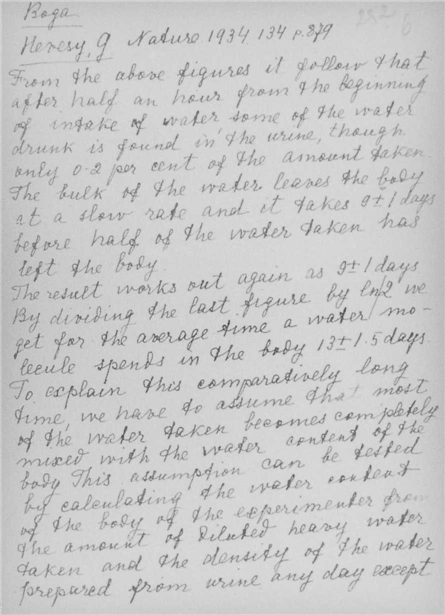 Boga
Hevesy, G Nature 1934 134 p. 879
From the above figures it follow that
after half an hour from the beginning
of intake of water some of the water
drunk is found in the urine, though
only 0-2 per cent of the amount taken.
The bulk of the water leaves the body
at a slow rate and it takes 9±1 days
before half of the water taken has
left the body.
The result works out again as 9±1 days
By dividing the last figure by ln2 we
get for the average time a water mo-
lecule spends in the body 13±1.5 days.
To explain this comparatively long
time, we have to assume that most
of the water taken becomes completely
mixed with the water content of the
body This assumption can be tested
by calculating the water content
of the body of the experimenter from
the amount of diluted heavy water
taken and the density of the water
prepared from urine any day except